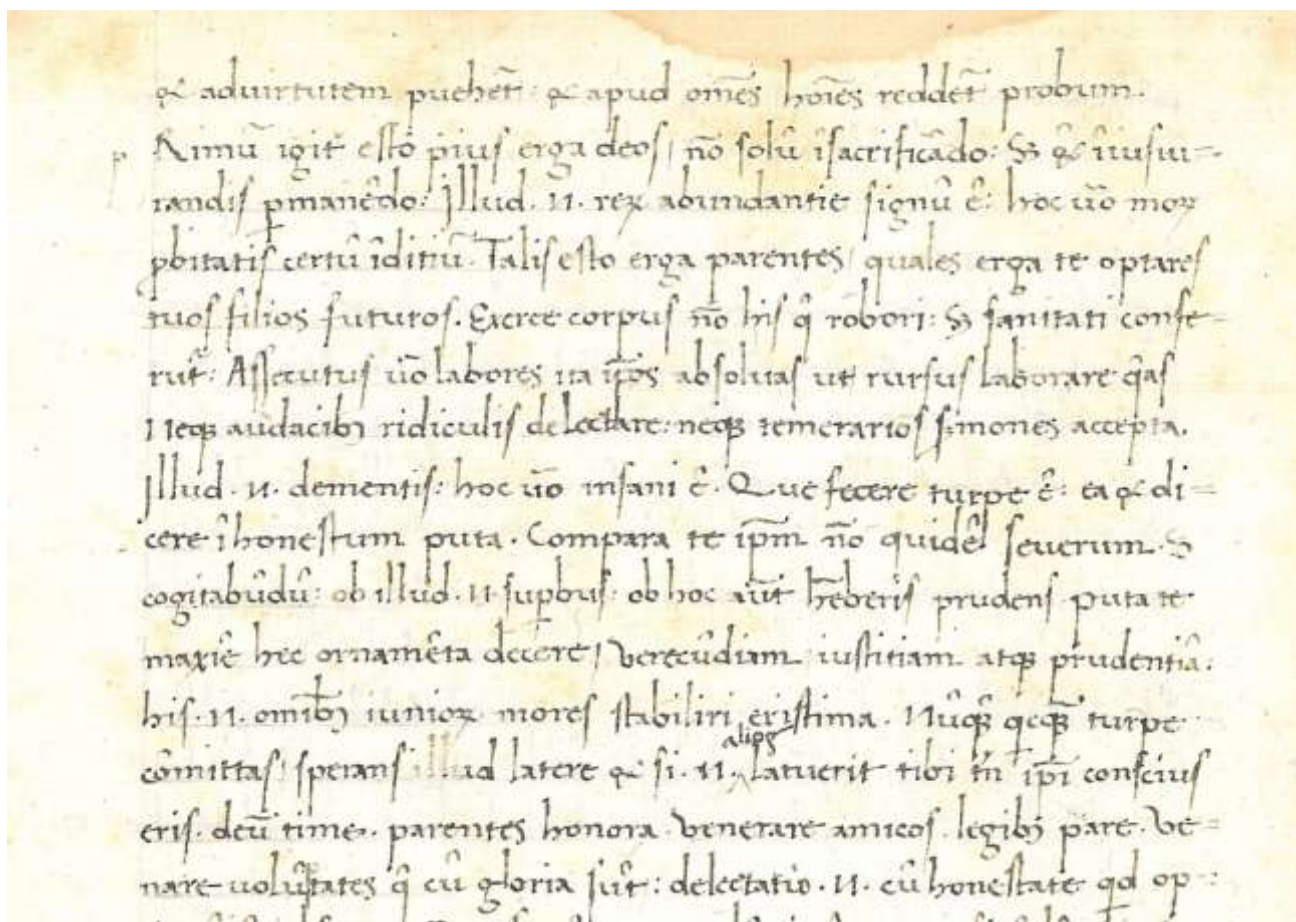 & aduirtutem puehet̃ : & apud om̃es hoı̃es reddet̃ probum.
p Rimũ igit̃ esto pius erga deos / nõ solũ ı̃sacrificãdo : Sꝫ & ı̃ iusiu=
randis ꝑmanẽdo : Illud . n . reꝝ abundantie signũ ẽ : hoc ũo moꝝ
ꝓbitatis certũ ı̃ditiũ . Talis esto erga parentes / quales erga te optares
tuos filios futuros . Exerce corpus nõ his q̃ robori : Sꝫ sanitati confe=
rũt : Assecutus ũo labores ita ip̃os absoluas ut rursus laborare q̃as
Neqꝫ audacibꝫ ridiculis delectare : neqꝫ temerarios s̃mones accepta .
Illud . n . dementis : hoc ũo insani ẽ . Que fecere turpe ẽ : ea & di=
cere ı̃honestum puta . Compara te ip̃m nõ quidẽ severum . Sꝫ
cogitabũdũ : ob illud . n . suꝑbus : ob hoc aũt hẽberis prudens . puta te
maxiẽ hec ornamẽta decere / verecũdiam iustitiam atqꝫ prudentiã :
his . n . omı̃bꝫ iunioꝝ mores stabiliri existima . Nũqꝫ̃ qcqꝫ̃ turpe
cõmittas / sperans illud latere & si . n . alios latuerit tibi tñ ip̃i conscius
eris . deũ time . parentes honora . venerare amicos . legibꝫ pare . Ve=
nare uolũptates q̃ cũ gloria sũt : delectatio . n . cũ honestate qd op :